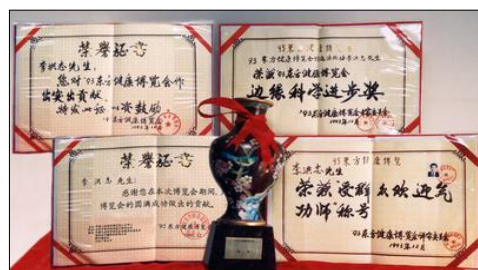 荣誉证书
李洪志先生:
您对'93东方健康博览会作
出突出贡献。
特发此证 以资鼓励。
'93东方健康博览会
1993年12月
'93东方健康博览会
荣获'93东方健康博览会
边缘科学进步奖
'93东方健康博览会
1993年12月
荣誉证书
李洪志先生:
感谢您在本次博览会期间,
博览会的圆满成功做出的贡献。
'93东方健康博览会
'93东方健康博览
李洪志先生
荣获"受群众欢迎气
功师"称号
'93东方健康博览会评审委员会
1993年12月